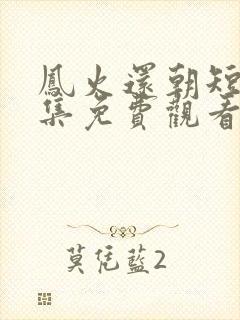 鳳火還朝短
集免費觀看
莫凭藍2